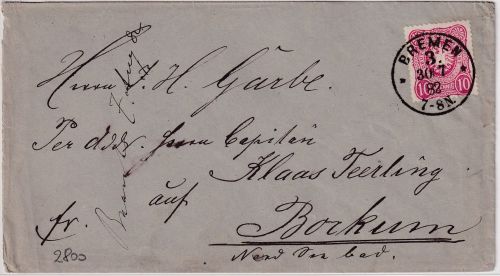 BREMEN
3.
30 7
82
7-8N.
10 PFENNIG 10
Herrn J. H. Garbe.
Per Addr. Herrn Capitän
Klaas Teerling
auf
fr. Borkum
Nord See bad.
2800